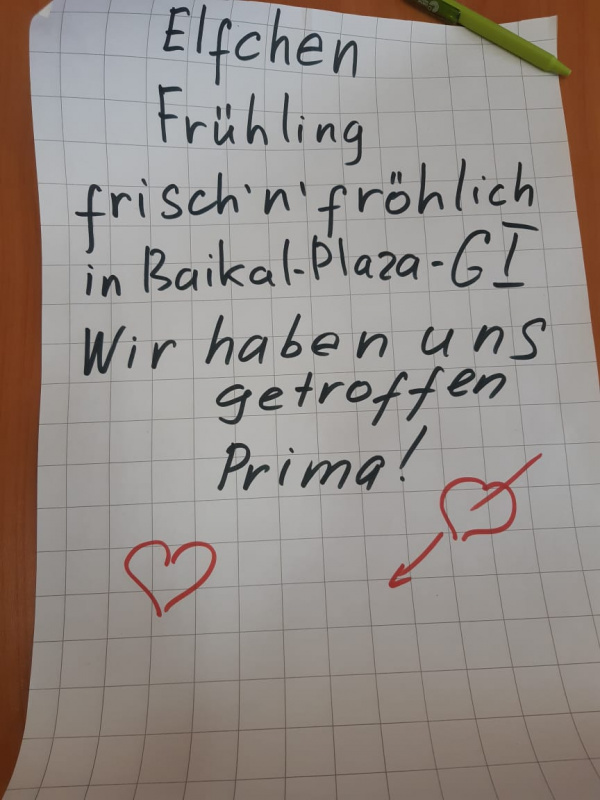 Elfchen
Frühling
frisch'n'fröhlich
in Baikal-Plaza-GI
Wir haben uns
getroffen
Prima!